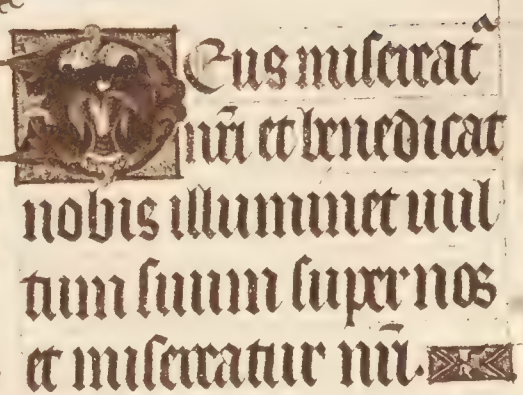 Deus misereat᷑
nr̄i et benedicat
nobis illuminet vul
tum suum super nos
et misereatur nr̄i.